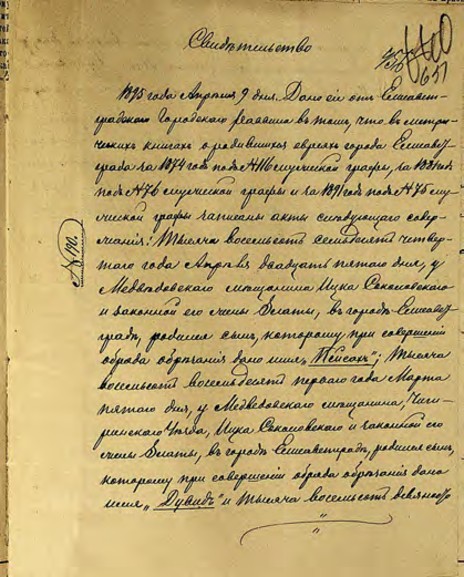 Свидѣтельство
651
1895 года Апрѣля 9 дня. Дано сіе отъ Елисавет-
градскаго Городского Раввина въ томъ, что въ метри-
ческихъ книгахъ о родившихся евреяхъ города Елисавет-
града за 1874 годъ подъ № 116 мужеской графы, за 1881 годъ
подъ № 76 мужеской графы и за 1891 годъ подъ № 75 му-
жеской графы записаны акты слѣдующаго содер-
жанія: Тысяча восемьсотъ семьдесятъ четвер-
таго года Апрѣля двадцать пятаго дня, у
Медвѣдовскаго мѣщанина Ицка Соколовскаго
и законной его жены Златы, въ городѣ Елисавет-
градѣ, родился сынъ, которому при совершеніи
обряда обрѣзанія дано имя „Пейсахъ“; Тысяча
восемьсотъ восемьдесятъ перваго года Марта
пятаго дня, у Медведовскаго мѣщанина, Чиги-
ринскаго Уѣзда, Ицка Соколовскаго и законной его
жены Златы, въ городѣ Елисаветградѣ, родился сынъ,
которому при совершеніи обряда обрѣзанія дано
имя „Дувидъ“ и Тысяча восемьсотъ девяносто
№ 190.